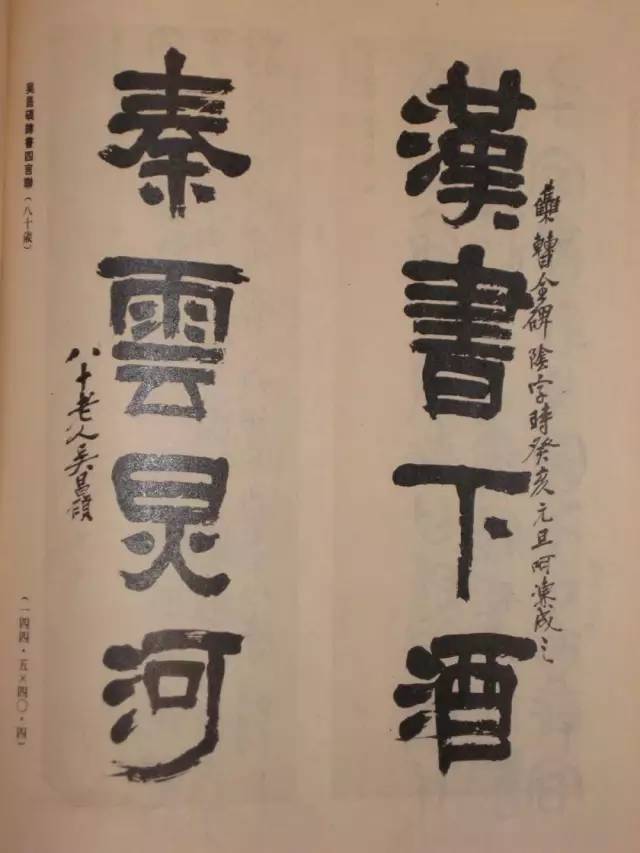 漢書下酒
曹全碑陰字時癸亥元旦呵凍成之
秦雲炅河
八十老人吳昌碩
吳昌碩隸書四言聯(八十歲)
(一四四·五×四〇·四)